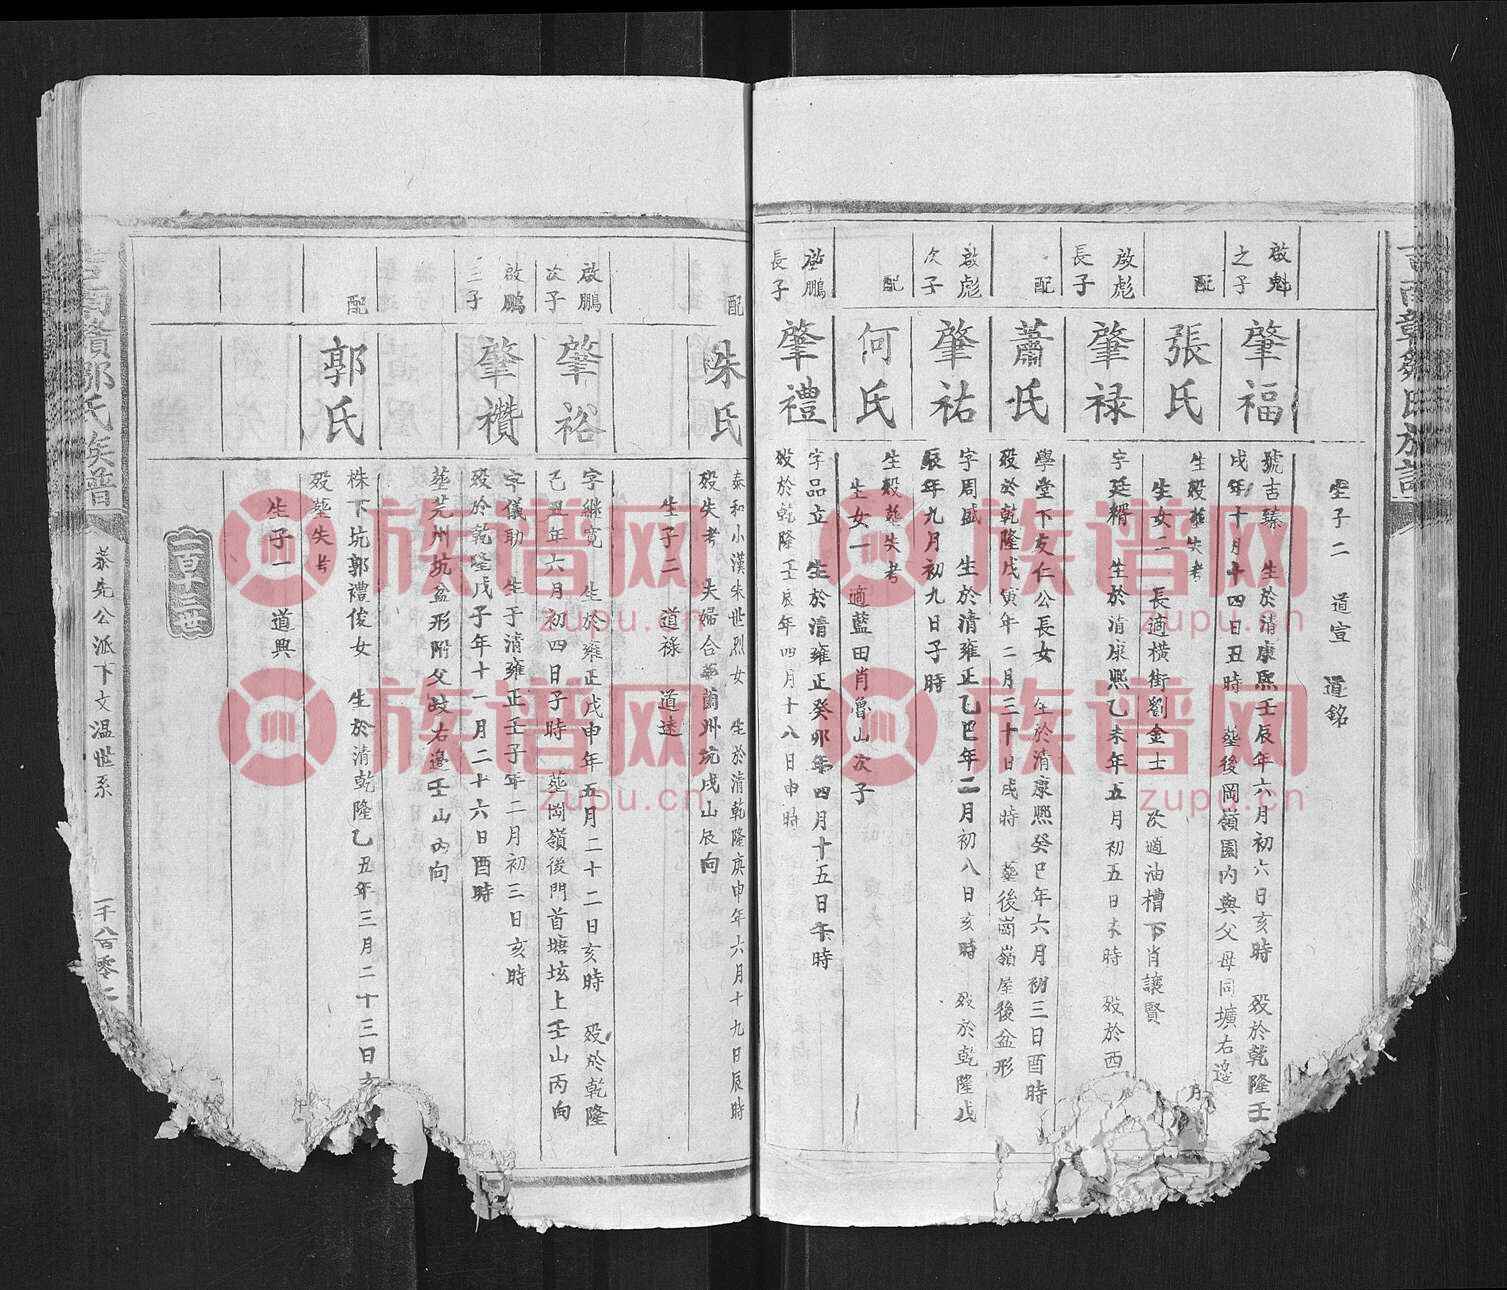 生子二　道宣　道銘
啟魁
之子
肇福
號吉臻　生於清康熙壬辰年六月初六日亥時　殁於乾隆壬
戌年十月十四日丑時　塟後岡嶺園內與父母同壙右邊
配
張氏
生殁塟失考
生女二　長適橫街劉金士　次適油槽下肖讓賢
啟彪
長子
肇禄
字廷楈　生於清康熙乙未年五月初五日未時　殁於酉
月
配
蕭氏
學堂下友仁公長女　生於清康熙癸巳年六月初三日酉時
殁於乾隆戊寅年二月三十日戌時　塟後崗嶺屋後盆形
啟彪
次子
肇祐
字周盛　生於清雍正乙巳年二月初八日亥時　殁於乾隆戊
辰年九月初九日子時
配
何氏
生殁塟失考
生女一　適藍田肖魯山次子
啟鵬
長子
肇禮
字品立　生於清雍正癸卯年四月十五日午時
殁於乾隆壬辰年四月十八日申時
配
朱氏
泰和小漢朱世烈女　生於清乾隆庚申年六月十九日辰時
殁失考　夫婦合塟蘭州坑戌山辰向
生子二　道禄　道遠
啟鵬
次子
肇裕
字継寬　生於雍正戊申年五月二十二日亥時　殁於乾隆
己丑年六月初四日子時　塟岡嶺後門首塘坛上壬山丙向
啟鵬
三子
肇禶
字儀助　生于清雍正壬子年二月初三日亥時
殁於乾隆戊子年十一月二十六日酉時
塟芫州坑盆形附父歧右邊壬山丙向
配
郭氏
株下坑郭禮俊女　生於清乾隆乙丑年三月二十三日亥
殁塟失考
生子一　道興
吉南贛鄒氏族譜
泰先公派下文温世系
一千八百零
族谱网
zupu.cn
族谱网
zupu.cn
族谱网
zupu.cn
族谱网
zupu.cn